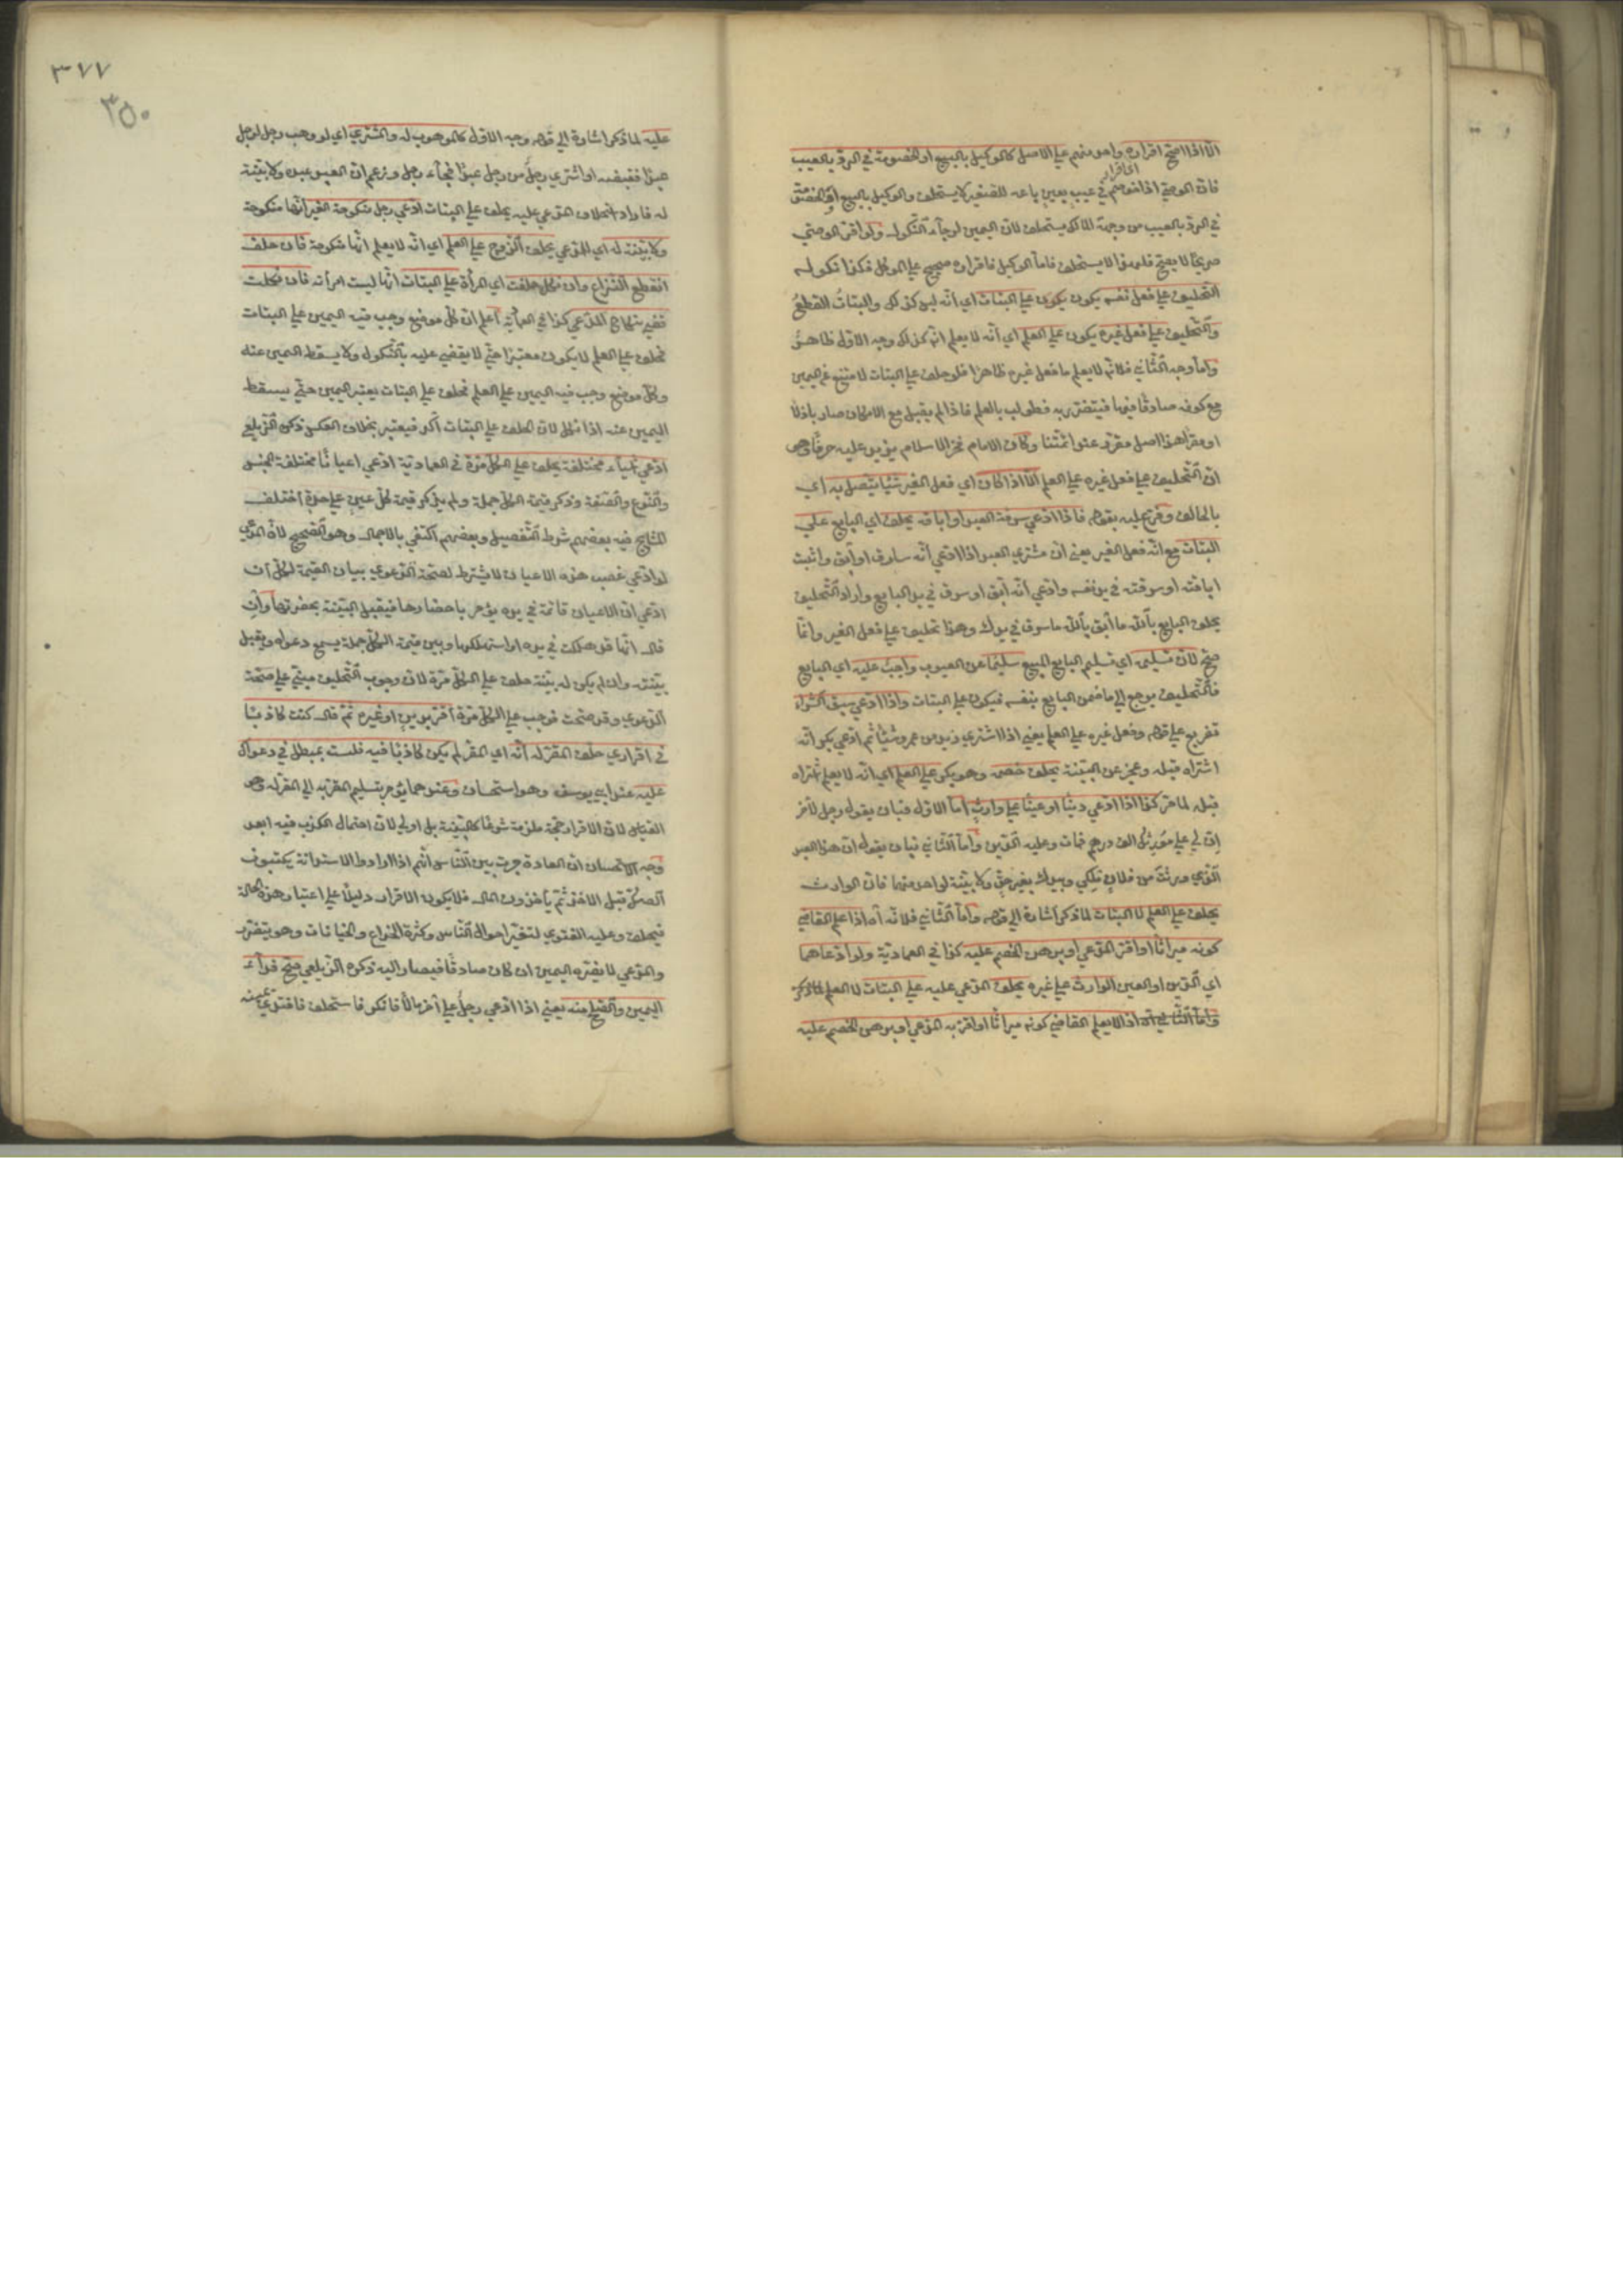 الا اذا صح اقراره واحد منهم علي الاصيل كالوكيل بالبيع او الخصومة في الرد بالعيب
اي اقرار
فان الوصي اذا خوصم في عيب بعين باعه للصغير لا يستحلف والوكيل بالبيع او الخصومة
في الرد بالعيب من جهة المالك يستحلف لان اليمين لرجاء النكول ولو اقر الوصي
صريحا لا يصح فلهذا لا يستحلف فاما الوكيل فاقراره صحيح علي الموكل فكذا نكوله
التحليف علي فعل نفسه يكون يكون علي البتات اي انه ليس كذلك والبتات القطع
والتحليف علي فعل غيره يكون علي العلم اي انه لا يعلم انه كذلك وجه الاول ظاهر
واما وجه الثاني فلانه لا يعلم ما فعل غيره ظاهرا فلو حلف علي البتات لامتنع عن اليمين
مع كونه صادقا فيها فيتضرر به فطولب بالعلم فاذا لم يقبل مع الامكان صار باذلا
او مقرا هذا اصل مقرر عند ائمتنا وكان الامام فخر الاسلام يزيد عليه حرفا وهو
ان التحليف علي فعل غيره علي العلم الا اذا كان اي فعل الغير شيئا يتصل به اي
بالحالف وفرع عليه بقوله فاذا ادعي سرقة العبد او اباقه يحلف اي البايع علي
البتات مع انه فعل الغير يعني ان مشتري العبد اذا ادعي انه سارق او آبق واثبت
اباقه او سرقته في يد نفسه وادعي انه آبق او سرق في يد البايع واراد التحليف
يحلف البايع بالله ما أبق بالله ما سرق في يدك وهذا تحليف علي فعل الغير وانما
صح لان تسليمه اي تسليم البايع المبيع سليما عن العيوب واجب عليه اي البايع
فالتحليف يرجع الي ما ضمن البايع بنفسه فيكون علي البتات واذا ادعي سبق الشراء
تفريع علي قوله وفعل غيره علي العلم يعني اذا اشتري زيد من عمرو شيئا ثم ادعي بكر انه
اشتراه قبله وعجز عن البينة يحلف خصمه وهو بكر علي العلم اي انه لا يعلم اشتراه
قبله لما مر كذا اذا ادعي دينا او عينا علي وارث اما الاول فبان يقول رجل لآخر
ان لي علي مورثك الف درهم فمات وعليه الدين واما الثاني فبان يقول ان هذا العبد
الذي ورثت من فلان ملكي وبيدك بغير حق ولا بينة لواحد منهما فان الوارث
يحلف علي العلم لا البتات لما ذكر اشارة الي قوله واما الثاني فلانه آه اذا علم القاضي
كونه ميراثا او اقر المدعي او برهن الخصم عليه كذا في العمادية ولو ادعاهما
اي الدين او العين الوارث علي غيره يحلف المدعي عليه علي البتات لا العلم لما ذكر
واما الثاني آه اذا لا يعلم القاضي كونه ميراثا او اقر به المدعي او برهن الخصم عليه
٣٧٧
٣٥٠
عليه لما ذكر اشارة الي قوله وجه الاول كالموهوب له والمشتري اي لو وهب رجل لرجل
عبدا فقبضه او اشتري رجل من رجل عبدا فجاء رجل وزعم ان العبد عبده ولا بينة
له فاراد استحلاف المدعي عليه يحلف علي البتات ادعي رجل منكوحة الغير انها منكوحة
ولا بينة له اي للمدعي يحلف الزوج علي العلم اي انه لا يعلم انها منكوحة فان حلف
انقطع النزاع وان نكل حلفت اي المرأة علي البتات انها ليست امرأته فان نكلت
قضي بنكاح المدعي كذا في العمادية اعلم ان كل موضع وجب فيه اليمين علي البتات
فحلف علي العلم لا يكون معتبرا حتي لا يقضي عليه بالنكول ولا يسقط اليمين عنه
وكل موضع وجب فيه اليمين علي العلم فحلف علي البتات يعتبر اليمين حتي يسقط
اليمين عنه اذا نكل لان الحلف علي البتات آكد فيعتبر بخلاف العكس ذكره الزيلعي
ادعي اشياء مختلفة يحلف علي الكل مرة في العمادية ادعي اعيانا مختلفة الجنس
والنوع والصفة وذكر قيمة الكل جملة ولم يذكر قيمة كل عين علي حدة اختلف
المشايخ فيه بعضهم شرط التفصيل وبعضهم اكتفي بالاجمال وهو الصحيح لان المدعي
لو ادعي غصب هذه الاعيان لا يشترط لصحة الدعوي بيان القيمة لكل ان
ادعي ان الاعيان قائمة في يده يؤمر باحضارها فيقبل البينة بحضرتها وان
قال انها قد هلكت في يده او استهلكها وبين قيمة الكل جملة يسمع دعواه ويقبل
بينته وان لم يكن له بينة حلف علي الكل مرة لان وجوب التحليف مبني علي صحة
الدعوي وقد صحت فوجب علي الكل مرة اقر بدين او غيره ثم قال كنت كاذبا
في اقراري حلف المقر له انه اي المقر لم يكن كاذبا فيه فلست بمبطل في دعواك
عليه عند ابي يوسف وهو استحسان وعندهما يؤمر بتسليم المقر به الي المقر له وهو
القياس لان الاقرار حجة ملزمة شرعا كالبينة بل اولي لان احتمال الكذب فيه ابعد
وجه الاستحسان ان العادة جرت بين الناس انهم اذا ارادوا الاستدانة يكتبون
الصك قبل الاخذ ثم يأخذون المال فلا يكون الاقرار دليلا علي اعتبار هذه الحالة
فيحلف وعليه الفتوي لتغير احوال الناس وكثرة الخداع والخيانات وهو يتضرر
والمدعي لا يضره اليمين ان كان صادقا فيصار اليه ذكره الزيلعي صح فداء
اليمين والصلح منه يعني اذا ادعي رجل علي آخر مالا فانكر فاستحلف فافتدي يمينه